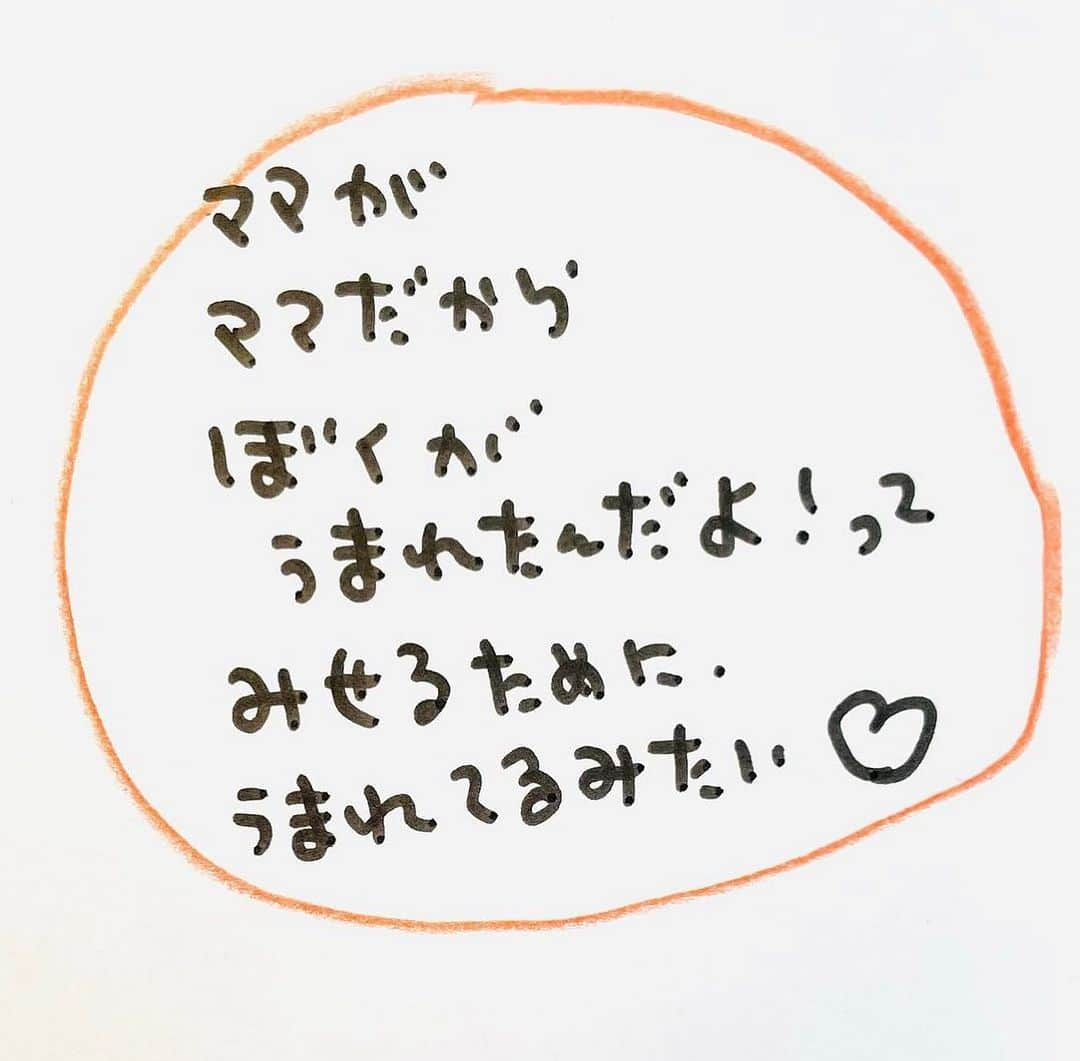 ママが
ママだから
ぼくが
うまれたんだよ！って
みせるために.
うまれてるみたい♡